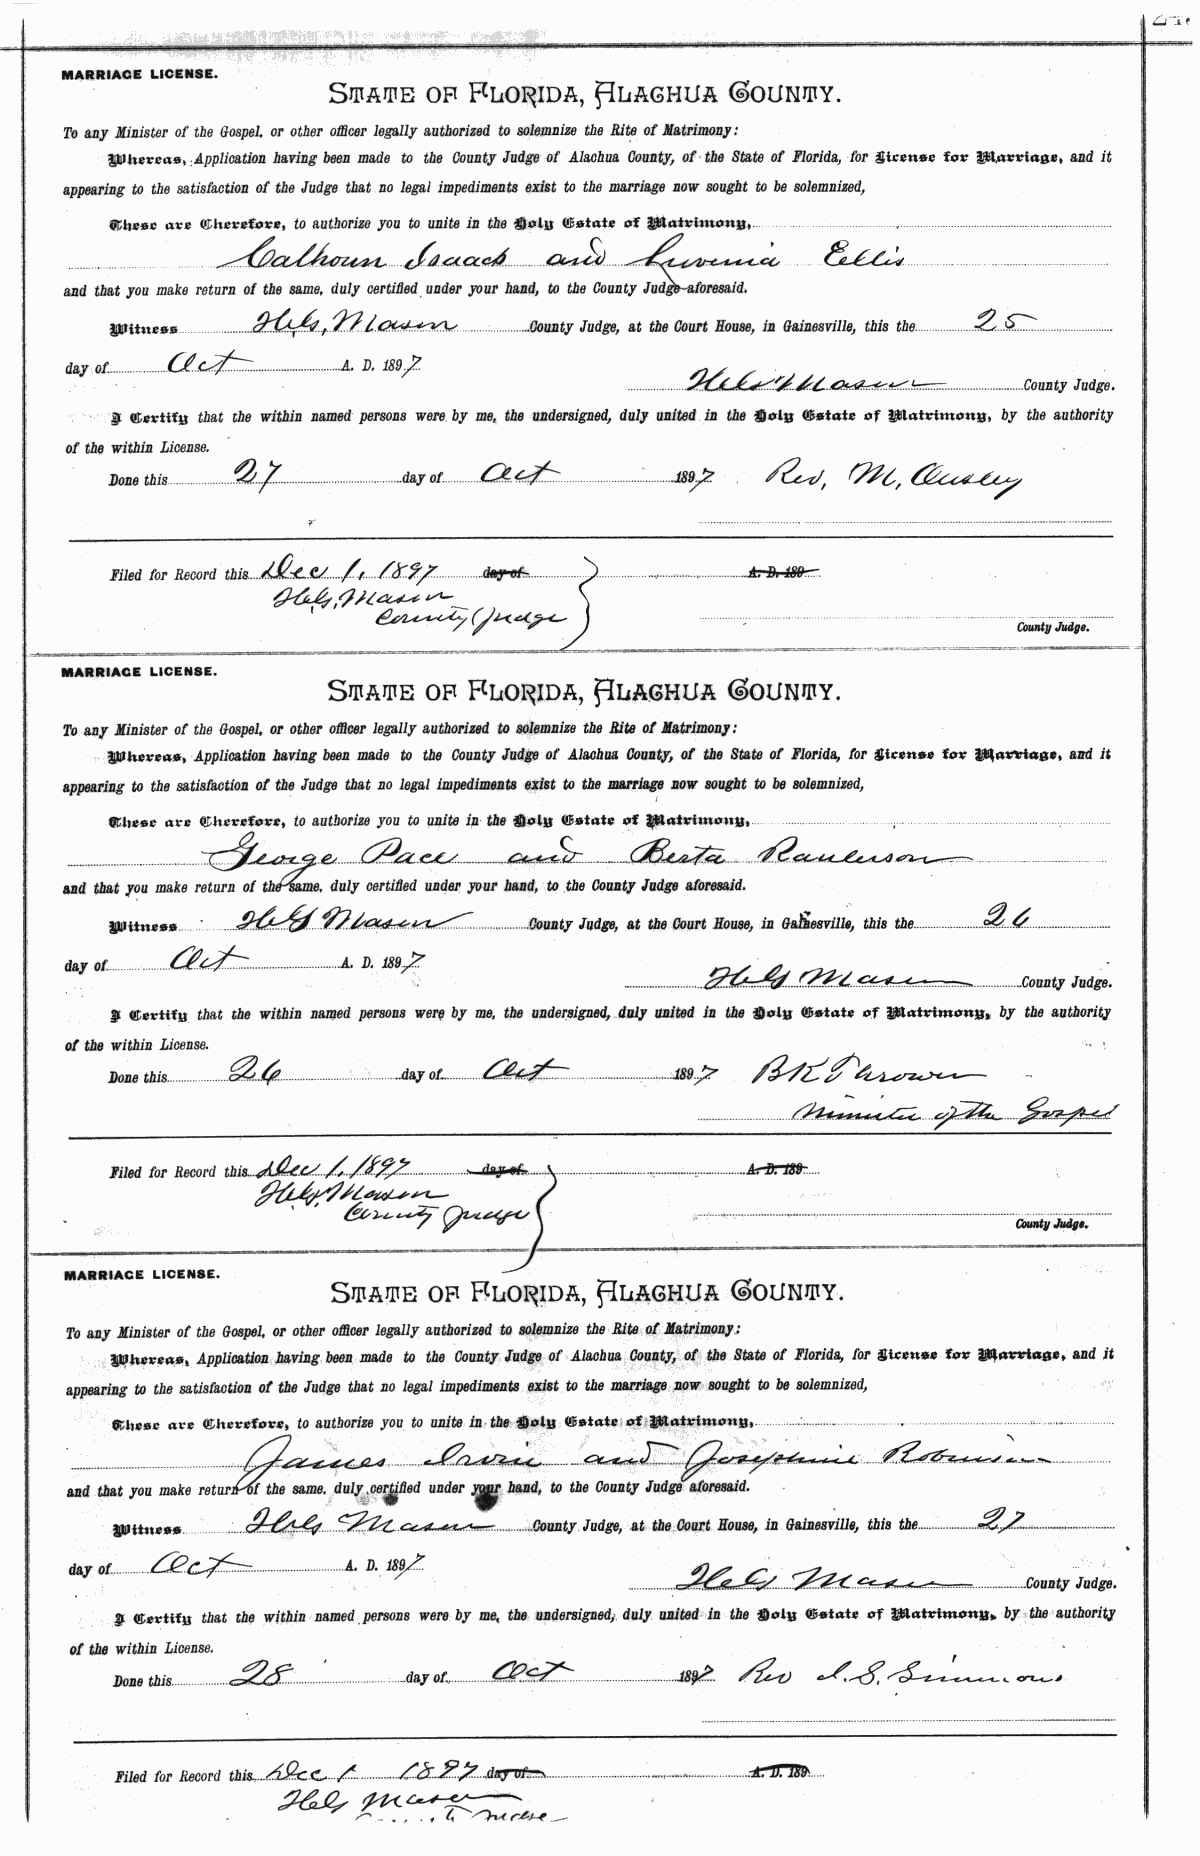 MARRIAGE LICENSE.
STATE OF FLORIDA, ALACHUA COUNTY.
To any Minister of the Gospel, or other officer legally authorized to solemnize the Rite of Matrimony:
Whereas, Application having been made to the County Judge of Alachua County, of the State of Florida, for License for Marriage, and it
appearing to the satisfaction of the Judge that no legal impediments exist to the marriage now sought to be solemnized,
These are Therefore, to authorize you to unite in the Holy Estate of Matrimony,
Calhoun Isaack and Luvenia Eellis
and that you make return of the same, duly certified under your hand, to the County Judge aforesaid.
Witness H.G. Mason County Judge, at the Court House, in Gainesville, this the 25
day of Oct A. D. 1897
H.G. Mason County Judge.
I Certify that the within named persons were by me, the undersigned, duly united in the Holy Estate of Matrimony, by the authority
of the within License.
Done this 27 day of Oct 1897 Rev, M, Ousley
Filed for Record this Dec 1, 1897 day of A. D. 189
H.G. Mason
County Judge
County Judge.
MARRIAGE LICENSE.
STATE OF FLORIDA, ALACHUA COUNTY.
To any Minister of the Gospel, or other officer legally authorized to solemnize the Rite of Matrimony:
Whereas, Application having been made to the County Judge of Alachua County, of the State of Florida, for License for Marriage, and it
appearing to the satisfaction of the Judge that no legal impediments exist to the marriage now sought to be solemnized,
These are Therefore, to authorize you to unite in the Holy Estate of Matrimony,
George Pace and Berta Raulerson
and that you make return of the same, duly certified under your hand, to the County Judge aforesaid.
Witness H G Mason County Judge, at the Court House, in Gainesville, this the 26
day of Oct A. D. 1897
H G Mason County Judge.
I Certify that the within named persons were by me, the undersigned, duly united in the Holy Estate of Matrimony, by the authority
of the within License.
Done this 26 day of Oct 1897 B K Thrower
Minister of the Gospel
Filed for Record this Dec 1, 1897 day of A. D. 189
H.G. Mason
County Judge
County Judge.
MARRIAGE LICENSE.
STATE OF FLORIDA, ALACHUA COUNTY.
To any Minister of the Gospel, or other officer legally authorized to solemnize the Rite of Matrimony:
Whereas, Application having been made to the County Judge of Alachua County, of the State of Florida, for License for Marriage, and it
appearing to the satisfaction of the Judge that no legal impediments exist to the marriage now sought to be solemnized,
These are Therefore, to authorize you to unite in the Holy Estate of Matrimony,
James Irvin and Josephine Robinson
and that you make return of the same, duly certified under your hand, to the County Judge aforesaid.
Witness H G Mason County Judge, at the Court House, in Gainesville, this the 27
day of Oct A. D. 1897
H G Mason County Judge.
I Certify that the within named persons were by me, the undersigned, duly united in the Holy Estate of Matrimony, by the authority
of the within License.
Done this 28 day of Oct 1897 Rev I. S. Simmons
Filed for Record this Dec 1 1897 day of A. D. 189
H G Mason
County Judge